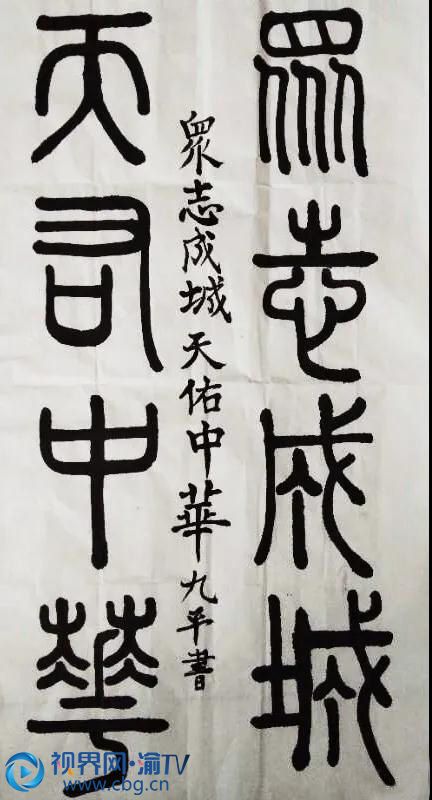 眾志成城
衆志成城天佑中華 九平書
天右中華
视界网·渝TV
www.cbg.cn